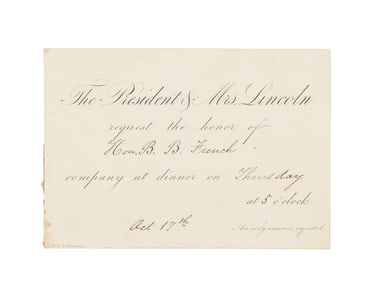 The President & Mrs. Lincoln
request the honor of
Hon. B. B. French
company at dinner on Thursday
at 5 o'clock
Oct 17th
An early answer is requested.